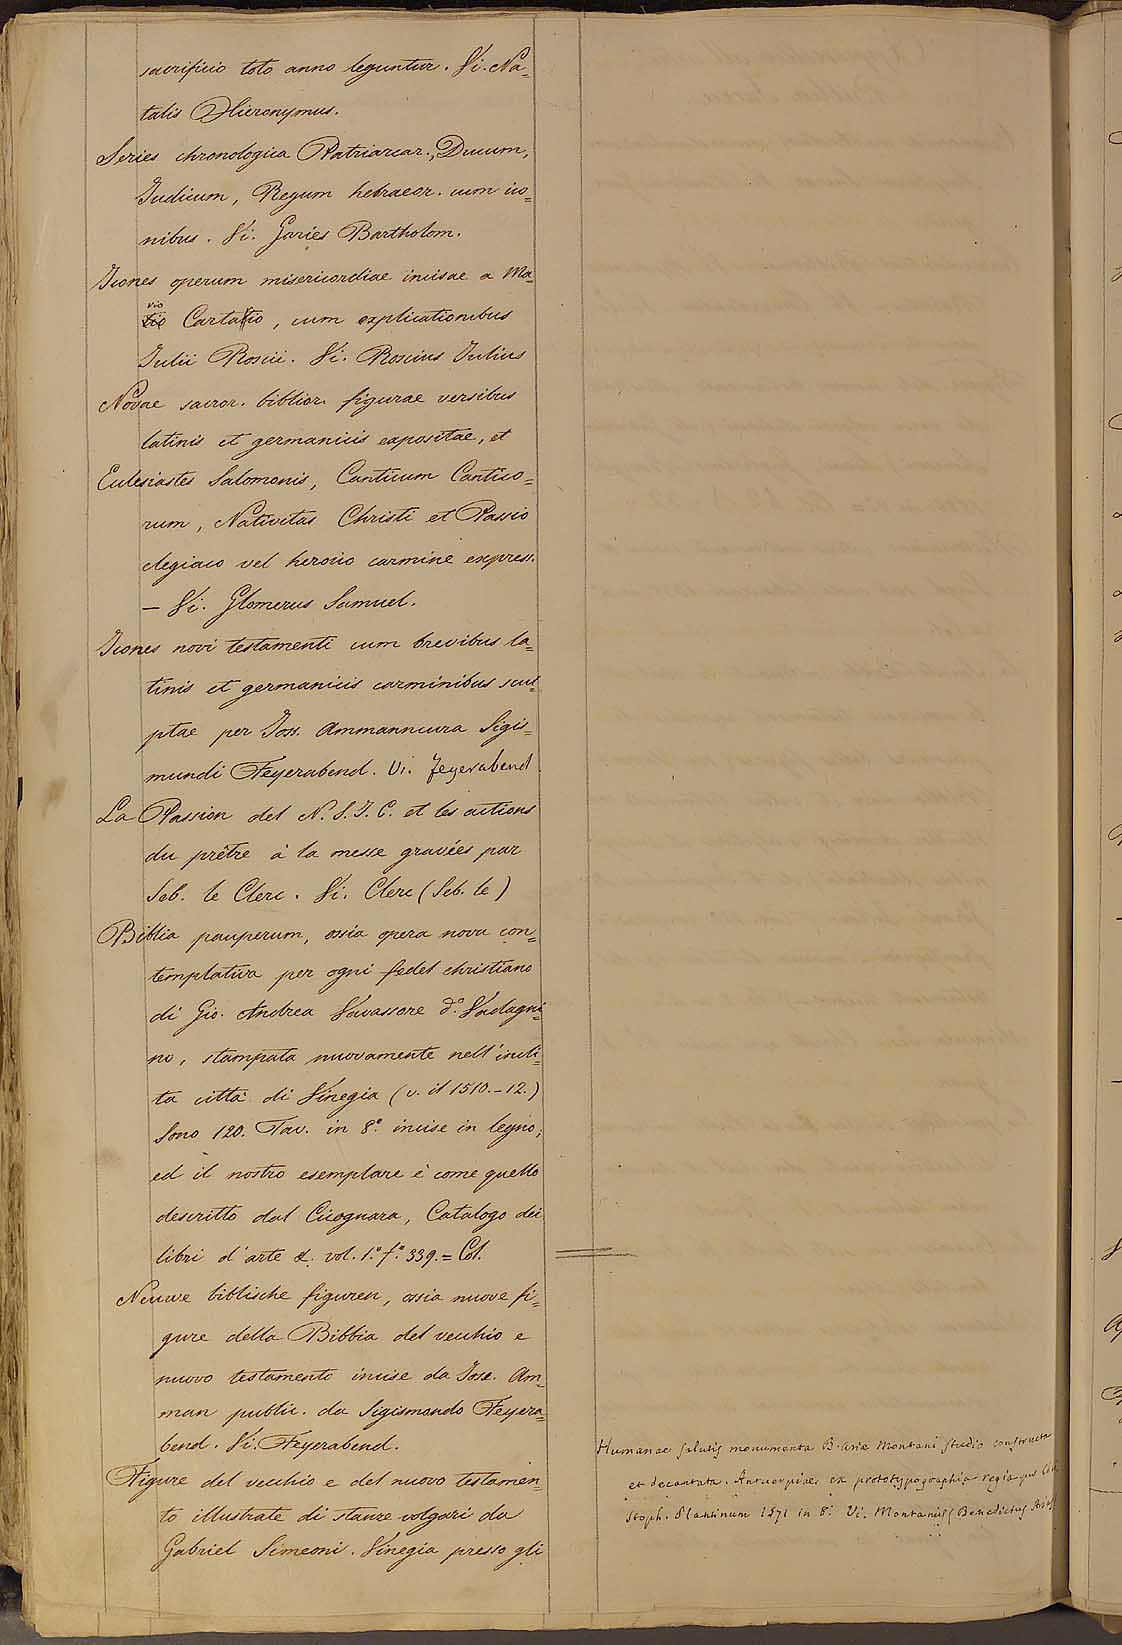 sacrificio toto anno leguntur. Vi. Na=
talis Hieronymus.
Series chronologica Patriarcar., Ducum,
Judicum, Regum hebraeor. cum ico=
nibus. Vi. Garies Bartholom.
Icones operum misericordiae incisae a Ma=
vio
tio Cartario, cum explicationibus
Julii Roscii. Vi. Roscius Julius
Novae sacror. biblior. figurae versibus
latinis et germanicis expositae, et
Eclesiastes Salomonis, Canticum Cantico=
rum, Nativitas Christi et Passio
elegiaco vel heroico carmine express.
— Vi. Glomerus Samuel.
Icones novi testamenti cum brevibus la=
tinis et germanicis carminibus scul=
ptae per Joss. Ammanncura Sigis=
mundi Feyerabend. Vi. Feyerabend
La Passion del N. S. J. C. et les actions
du prêtre à la messe gravées par
Seb. le Clerc. Vi. Clerc (Seb. le)
Biblia pauperum, ossia opera nova con=
templativa per ogni fedel christiano
di Gio. Andrea Vavassore d.º Vadagni=
no, stampata nuovamente nell'incli=
ta città di Vinegia (v. il 1510.-12.)
Sono 120. Tav. in 8.º incise in legno;
ed il nostro esemplare è come quello
descritto dal Cicognara, Catalogo dei
libri d'arte &. vol. 1.º f.º 339. = Col.
Neuwe biblische figuren, ossia nuove fi=
gure della Bibbia del vecchio e
nuovo testamento incise da Jose. Am=
man public. da Sigismondo Feyera=
bend. Vi. Feyerabend.
Figure del vecchio e del nuovo testamen=
to illustrate di stanze volgari da
Gabriel Simeoni. Vinegia presso gli
Humanae salutis monumenta B. Ariæ Montani studio constructa
et decantata. Antuerpiae, ex prototypographia regia per Chri
stoph. Plantinum 1571 in 8.º Vi. Montanus (Benedictus Arias)